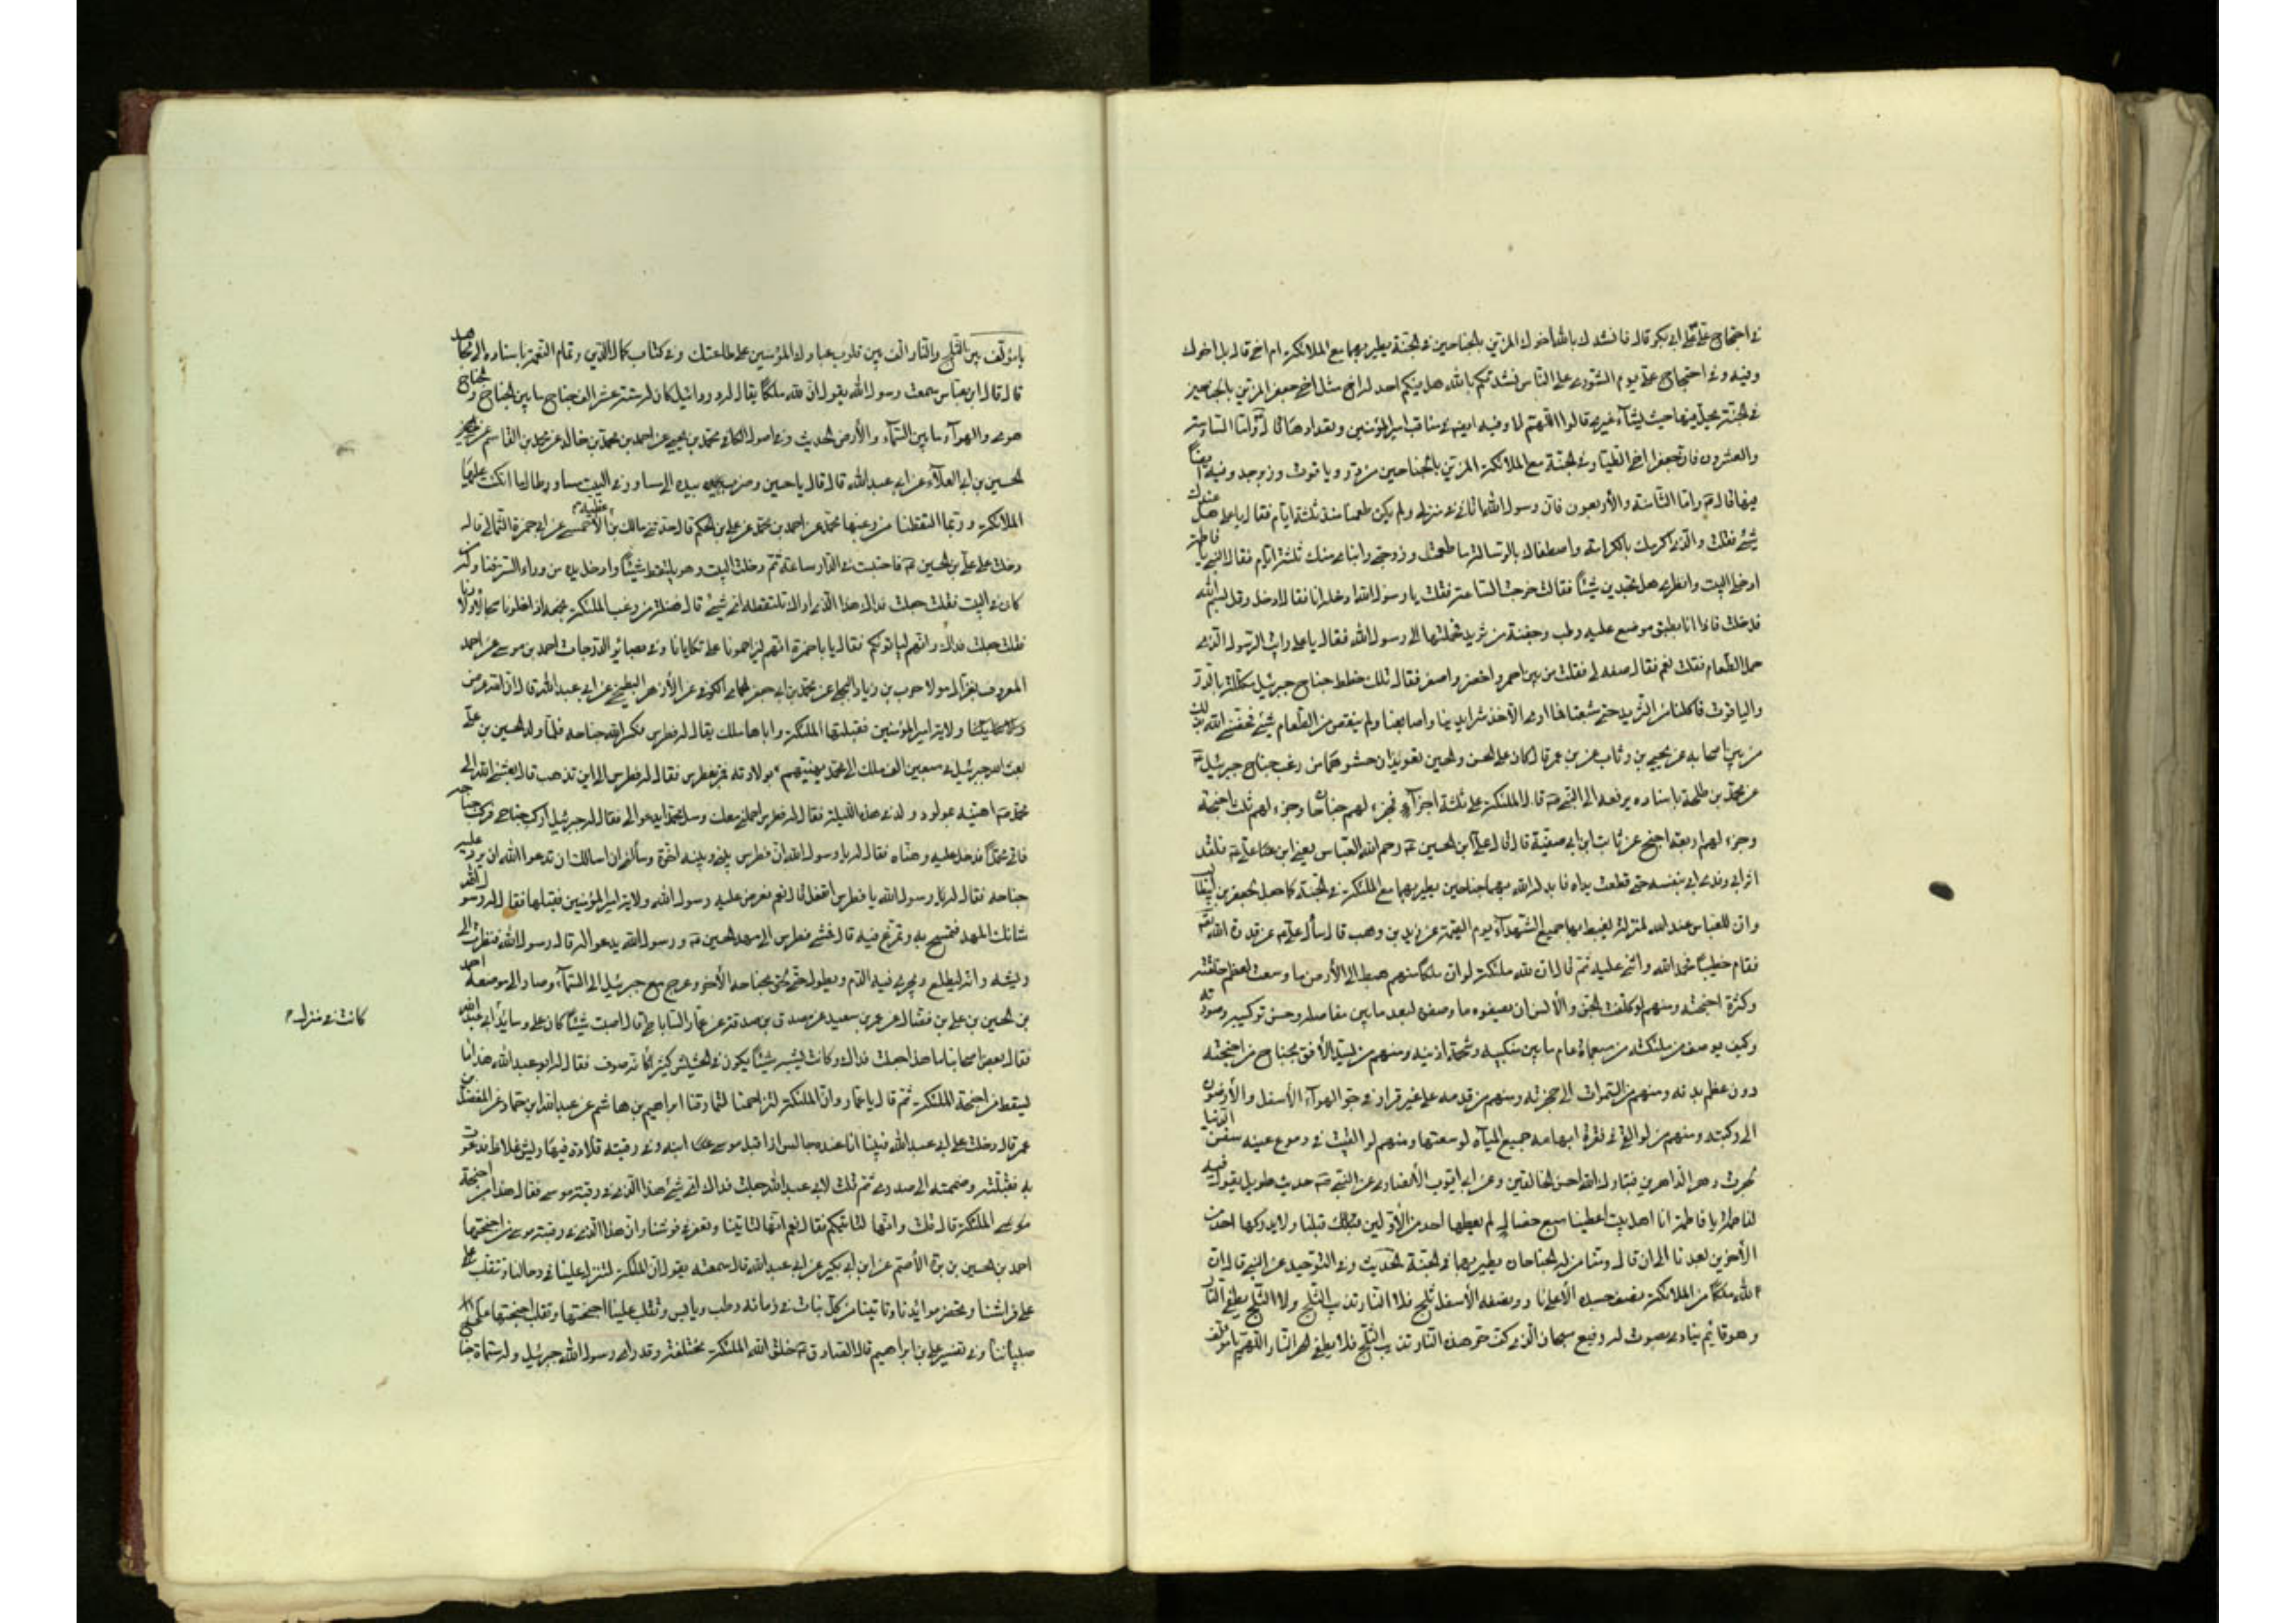 في احتجاج علي على ابي بكر قال فانشدك بالله اخوك المزين بالجناحين في الجنة يطير بهما مع الملائكة ام اخي قال بل اخوك
وفيه وفي احتجاج علي يوم الشورى على الناس نشدتكم بالله هل فيكم احد له اخ مثل اخي جعفر المزين بالجناحين
في الجنة يحل منها حيث يشاء غيري قالوا اللهم لا وفيه ايضا في مناقب امير المؤمنين وتعدادها قال واما السادسة
والعشرون فان جعفرا اخي الطيار في الجنة مع الملائكة المزين بالجناحين من در وياقوت وزبرجد وفيه ايضا
فيها قال واما الثامنة والأربعون فان رسول الله اتاني في منزلي ولم يكن طعمنا منذ ثلثة ايام فقال يا علي هل عندك
شيء فقلت والذي اكرمك بالكرامة واصطفاك بالرسالة ما طعمت وزوجتي وابناي منذ ثلثة ايام فقال النبي يا فاطمة
ادخلي البيت وانظري هل تجدين شيئا فقالت خرجت الساعة فقلت يا رسول الله ادخلها انا فقال ادخل وقل بسم الله
فدخلت فاذا انا بطبق موضوع عليه رطب وجفنة من ثريد فحملتها الى رسول الله فقال يا علي رايت الرسول الذي
حمل الطعام فقلت نعم فقال صفه لي فقلت من بين احمر واخضر واصفر فقال تلك خطط جناح جبرئيل مكللة بالدر
والياقوت فاكلنا من الثريد حتى شبعنا فما ارى الا خدش ايدينا واصابعنا ولم ينقص من الطعام شيء فخصني الله بذلك
من بين اصحابه عن يحيى بن وثاب عن بن عمر قال كان على الحسن والحسين تعويذان حشوهما من زغب جناح جبرئيل
عن محمد بن طلحة باسناده يرفعه الى النبي قال الملئكة على ثلثة اجزاء فجزء لهم جناحان وجزء لهم ثلث اجنحة
وجزء لهم اربعة اجنح عن ثابت ابن ابي صفية قال قال علي ابن الحسين رحم الله العباس يعني ابن علي فلقد
اثر وابلى وفدى اخاه بنفسه حتى قطعت يداه فابدله الله بهما جناحين يطير بهما مع الملئكة في الجنة كما جعل لجعفر بن ابيطالب
وان للعباس عند الله لمنزلة يغبطه بها جميع الشهداء يوم القيمة عن زيد بن وهب قال سئل علي عن قدرة الله
فقام خطيبا فحمد الله واثنى عليه ثم قال ان لله ملئكة لو ان ملكا منهم هبط الى الأرض ما وسعته لعظم خلقته
وكثرة اجنحته ومنهم لو كلفت الجن والأنس ان يصفوه ما وصفوه لبعد ما بين مفاصله وحسن تركيب صورته
وكيف يوصف من ملئكته من سبعمأة عام ما بين منكبيه وشحمة اذنيه ومنهم من يسد الأفق بجناح من اجنحته
دون عظم بدنه ومنهم من السموات الى حجزته ومنهم من قدمه على غير قرار في جو الهواء الأسفل والأرضون
الى ركبته ومنهم من لو القي في نقرة ابهامه جميع المياه لوسعتها ومنهم لو القيت في دموع عينه سفن الدنيا
لجرت دهر الداهرين فتبارك الله احسن الخالقين وعن ابي ايوب الأنصاري عن النبي حديث طويل يقول فيه
لفاطمة يا فاطمة انا اهل بيت اعطينا سبع خصال لم يعطها احد من الأولين قبلك قبلنا ولا يدركها احد من
الآخرين بعدنا الى ان قال ومنا من له جناحان يطير بهما في الجنة الحديث وفي التوحيد عن النبي قال ان
لله ملكا من الملائكة نصف جسده الأعلى نار ونصفه الأسفل ثلج فلا النار تذيب الثلج ولا الثلج يطفي النار
وهو قائم ينادي بصوت له رفيع سبحان الذي كف حر هذه النار تذيب الثلج فلا يطفي حر النار اللهم يا مؤلف
يا مؤلف بين الثلج والنار الف بين قلوب عبادك المؤمنين على طاعتك وفي كتاب كمال الدين وتمام النعمة باسناده الى مجاهد
قال قال ابن عباس سمعت رسول الله يقول ان لله ملكا يقال له دردائيل كان له ستة عشر الف جناح ما بين الجناح والجناح
هوى والهواء ما بين السماء والأرض الحديث وفي اصول الكافي محمد بن يحيى عن احمد بن محمد عن محمد بن خالد عن محمد بن القاسم عن
الحسين بن ابي العلاء عن ابي عبد الله قال قال يا حسين وضرب بيده الى مساور في البيت مساور طالما اتكت عليها
الملائكة وربما التقطنا من زغبها محمد عن احمد بن محمد عن علي بن الحكم قال حدثني مالك بن عطية الأحمسي عن ابي حمزة الثمالي قال
دخلت على علي بن الحسين فاحتبست في الدار ساعة ثم دخلت البيت وهو يلتقط شيئا وادخل يده من وراء الستر فناوله من
كان في البيت فقلت جعلت فداك هذا الذي اراك تلتقطه اي شيء قال فضلة من زغب الملئكة نجمعه اذا خلونا سبحا لأولادنا
فقلت جعلت فداك وانهم ليأتونكم فقال يا ابا حمزة انهم ليزاحمونا على تكائنا وفي بصائر الدرجات احمد بن موسى عن احمد
المعروف بغزال مولا حرب بن زياد البجلي عن محمد بن ابي جعفر الحمامي الكوفي عن الأزهر البطيخي عن ابي عبد الله قال ان الله عرض
ولاية امير المؤمنين فقبلتها الملئكة واباها ملك يقال له فطرس فكسر الله جناحه فلما ولد الحسين بن علي
بعث الله جبرئيل في سبعين الف ملك الى محمد يهنئهم بولادته فمر بفطرس فقال له فطرس الى اين تذهب قال بعثني الله الى
محمد اهنيه بمولود ولد في هذه الليلة فقال له فطرس احملني معك وسل محمدا يدعو لي فقال له جبرئيل اركب جناحي فركب جناحه
فاتى محمدا فدخل عليه وهناه فقال له يا رسول الله ان فطرس بيني وبينه اخوة وسألني ان اسالك ان تدعوا الله ان يرد عليه
جناحه فقال رسول الله يا فطرس اتفعل قال نعم فعرض عليه رسول الله ولاية امير المؤمنين فقبلها فقال له رسول الله
شانك المهد فتمسح به وتمرغ فيه قال فمشى فطرس الى مهد الحسين ورسول الله يدعو له قال رسول الله فنظرت الى
ريشه وانه ليطلع ويجري فيه الدم ويطول حتى لحق بجناحه الأخر وعرج مع جبرئيل الى السماء وصار الى موضعه احمد
بن الحسين بن علي بن فضال عن عمرو بن سعيد عن مصدق بن صدقة عن عمار الساباطي قال اصبت شيئا كان على وسائد ابي عبد الله
كانت في منزله
فقال بعض اصحابنا ما هذا جعلت فداك وكانت تشبه شيئا يكون في الحشيش كثيرا كانه صوف فقال له ابو عبد الله هذا مما
يسقط من اجنحة الملئكة ثم قال يا عمار وان الملئكة لتزاحمنا لنمارقنا ابراهيم بن هاشم عن عبد الله ابن حماد عن المفضل بن
عمر قال دخلت على ابي عبد الله فبينا انا عنده جالس اذا قبل موسى ابنه وفي رقبته قلادة فيها ريش غلاظ فدعوت
به فقبلته وضممته الى صدري ثم قلت لأبي عبد الله جعلت فداك اي شيء هذا الذي في رقبة موسى فقال هذا من اجنحة
الملئكة قال قلت وانها لتاتيكم فقال نعم انها لتاتينا وتعفر في فرشنا وان هذا الذي في رقبة موسى من اجنحتها
احمد بن الحسين بن برة الأصم عن ابن ابي بكير عن ابي عبد الله قال سمعته يقول ان الملئكة لتنزل علينا في رحالنا وتقلب على
على فراشنا وتحضر موائدنا وتاتينا من كل نبات في زمانه رطب ويابس وتقلب علينا اجنحتها وتقلب اجنحتها على
صبياننا وفي تفسير علي بن ابراهيم قال الصادق خلق الله الملئكة مختلفة وقد راى رسول الله جبرئيل وله ستمأة جناح